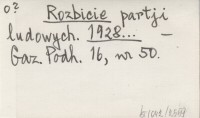 o?
Rozbicie partji
ludowych. 1928... –
Gaz. Podh. 16, nr 50.